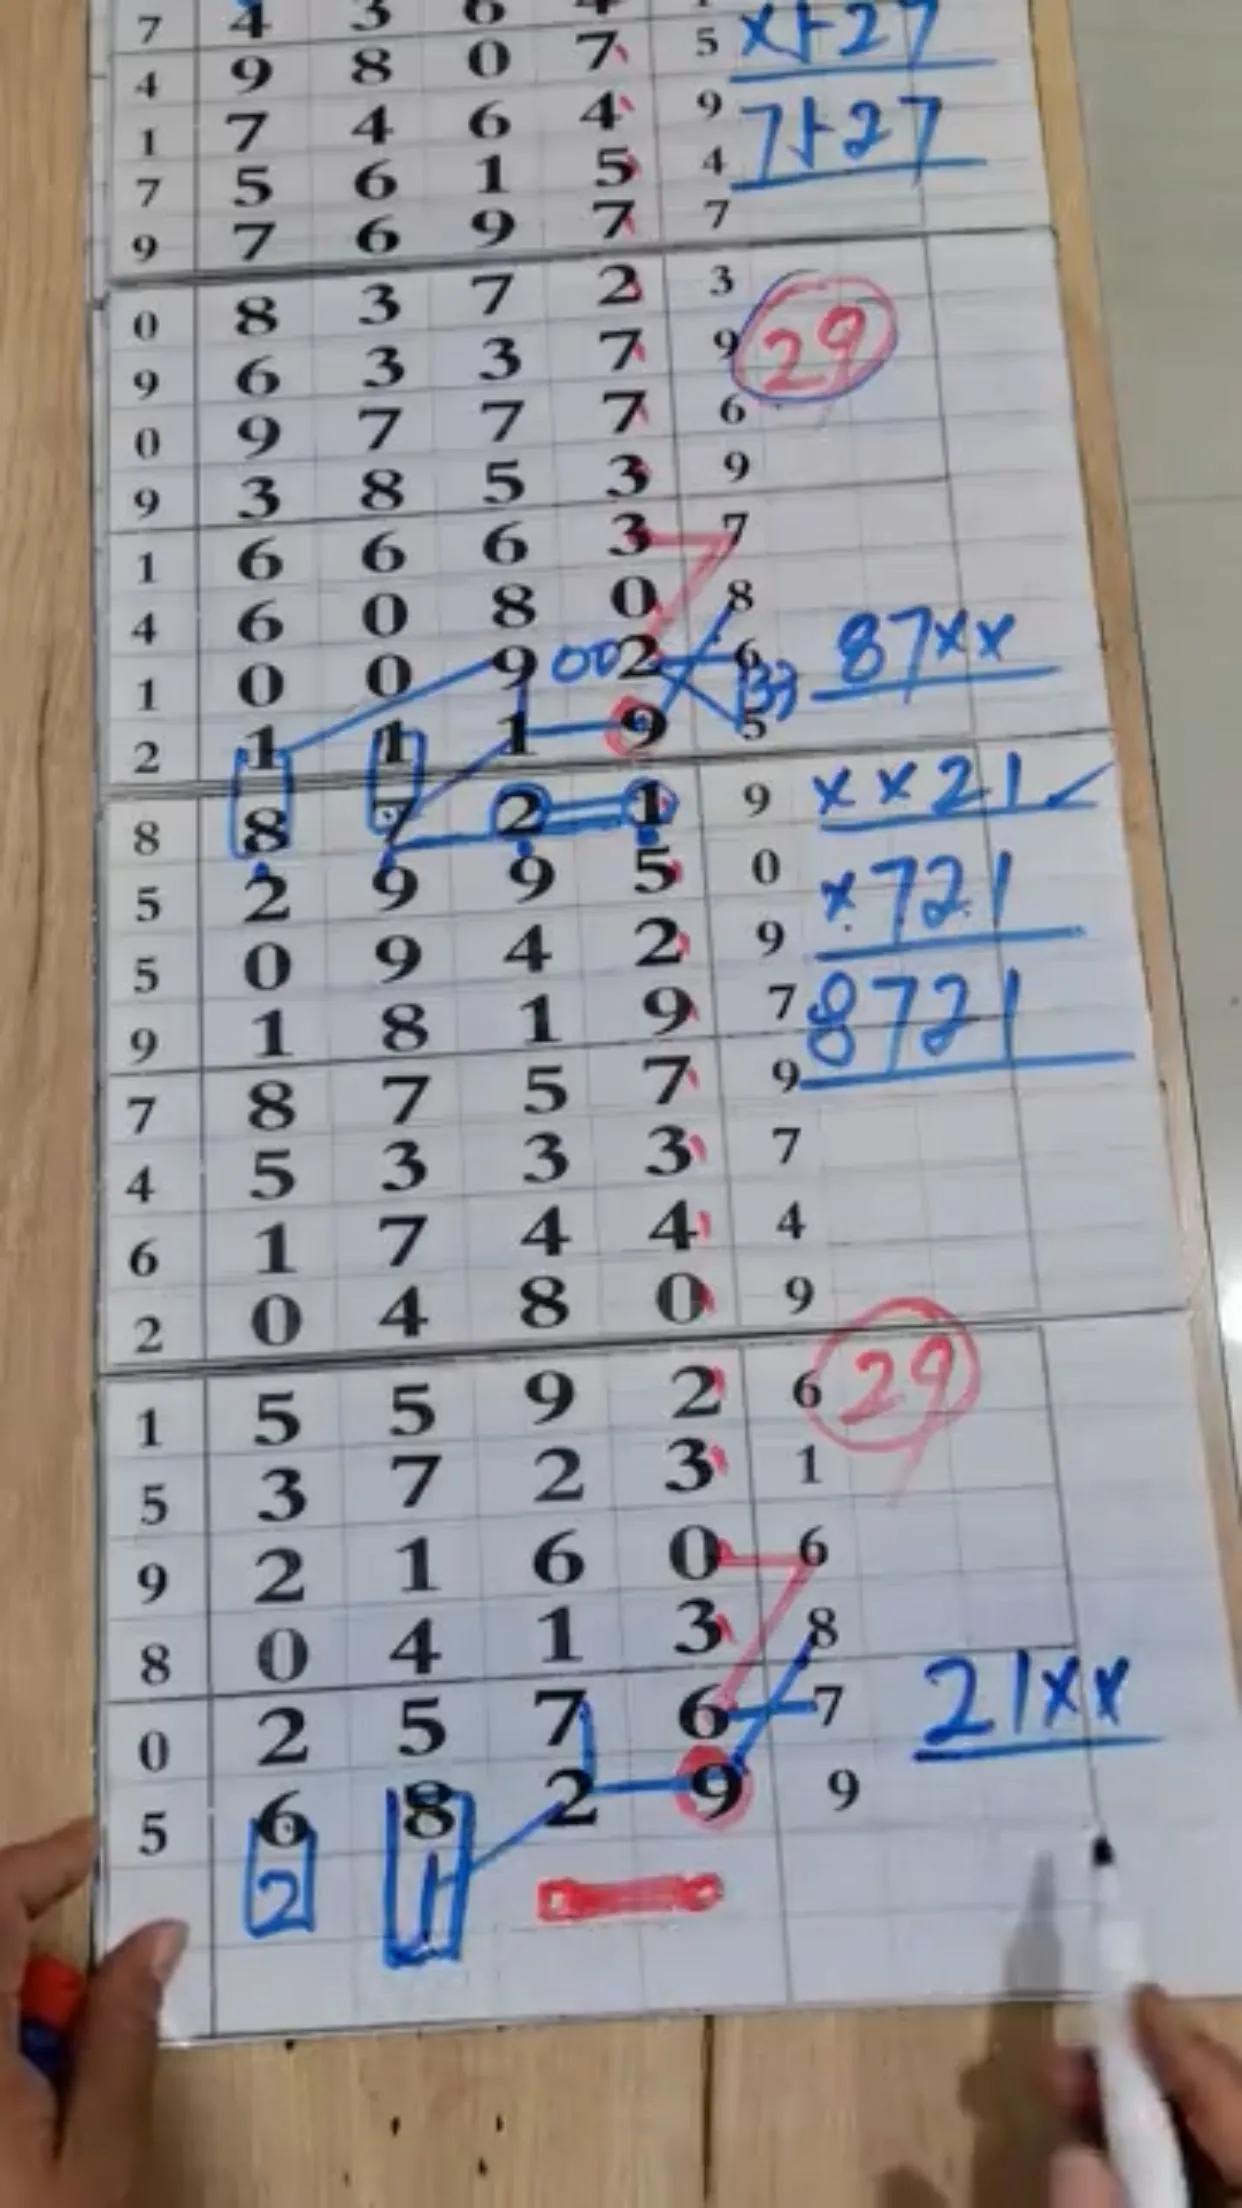 7 4 3 6 4
4 9 8 0 7 5 x+27
1 7 4 6 4 9 7+27
7 5 6 1 5 4
9 7 6 9 7 7
0 8 3 7 2 3
9 6 3 3 7 9 29
0 9 7 7 7 6
9 3 8 5 3 9
1 6 6 6 3 7
4 6 0 8 0 8
1 0 0 9 00 2 6 87xx
2 1 1 1 9 5
8 8 7 2 1 9 xx21
5 2 9 9 5 0 x721
5 0 9 4 2 9
9 1 8 1 9 7 8721
7 8 7 5 7 9
4 5 3 3 3 7
6 1 7 4 4 4
2 0 4 8 0 9
1 5 5 9 2 6 29
5 3 7 2 3 1
9 2 1 6 0 6
8 0 4 1 3 8
0 2 5 7 6 7 21xx
5 6 8 2 9 9
2 1